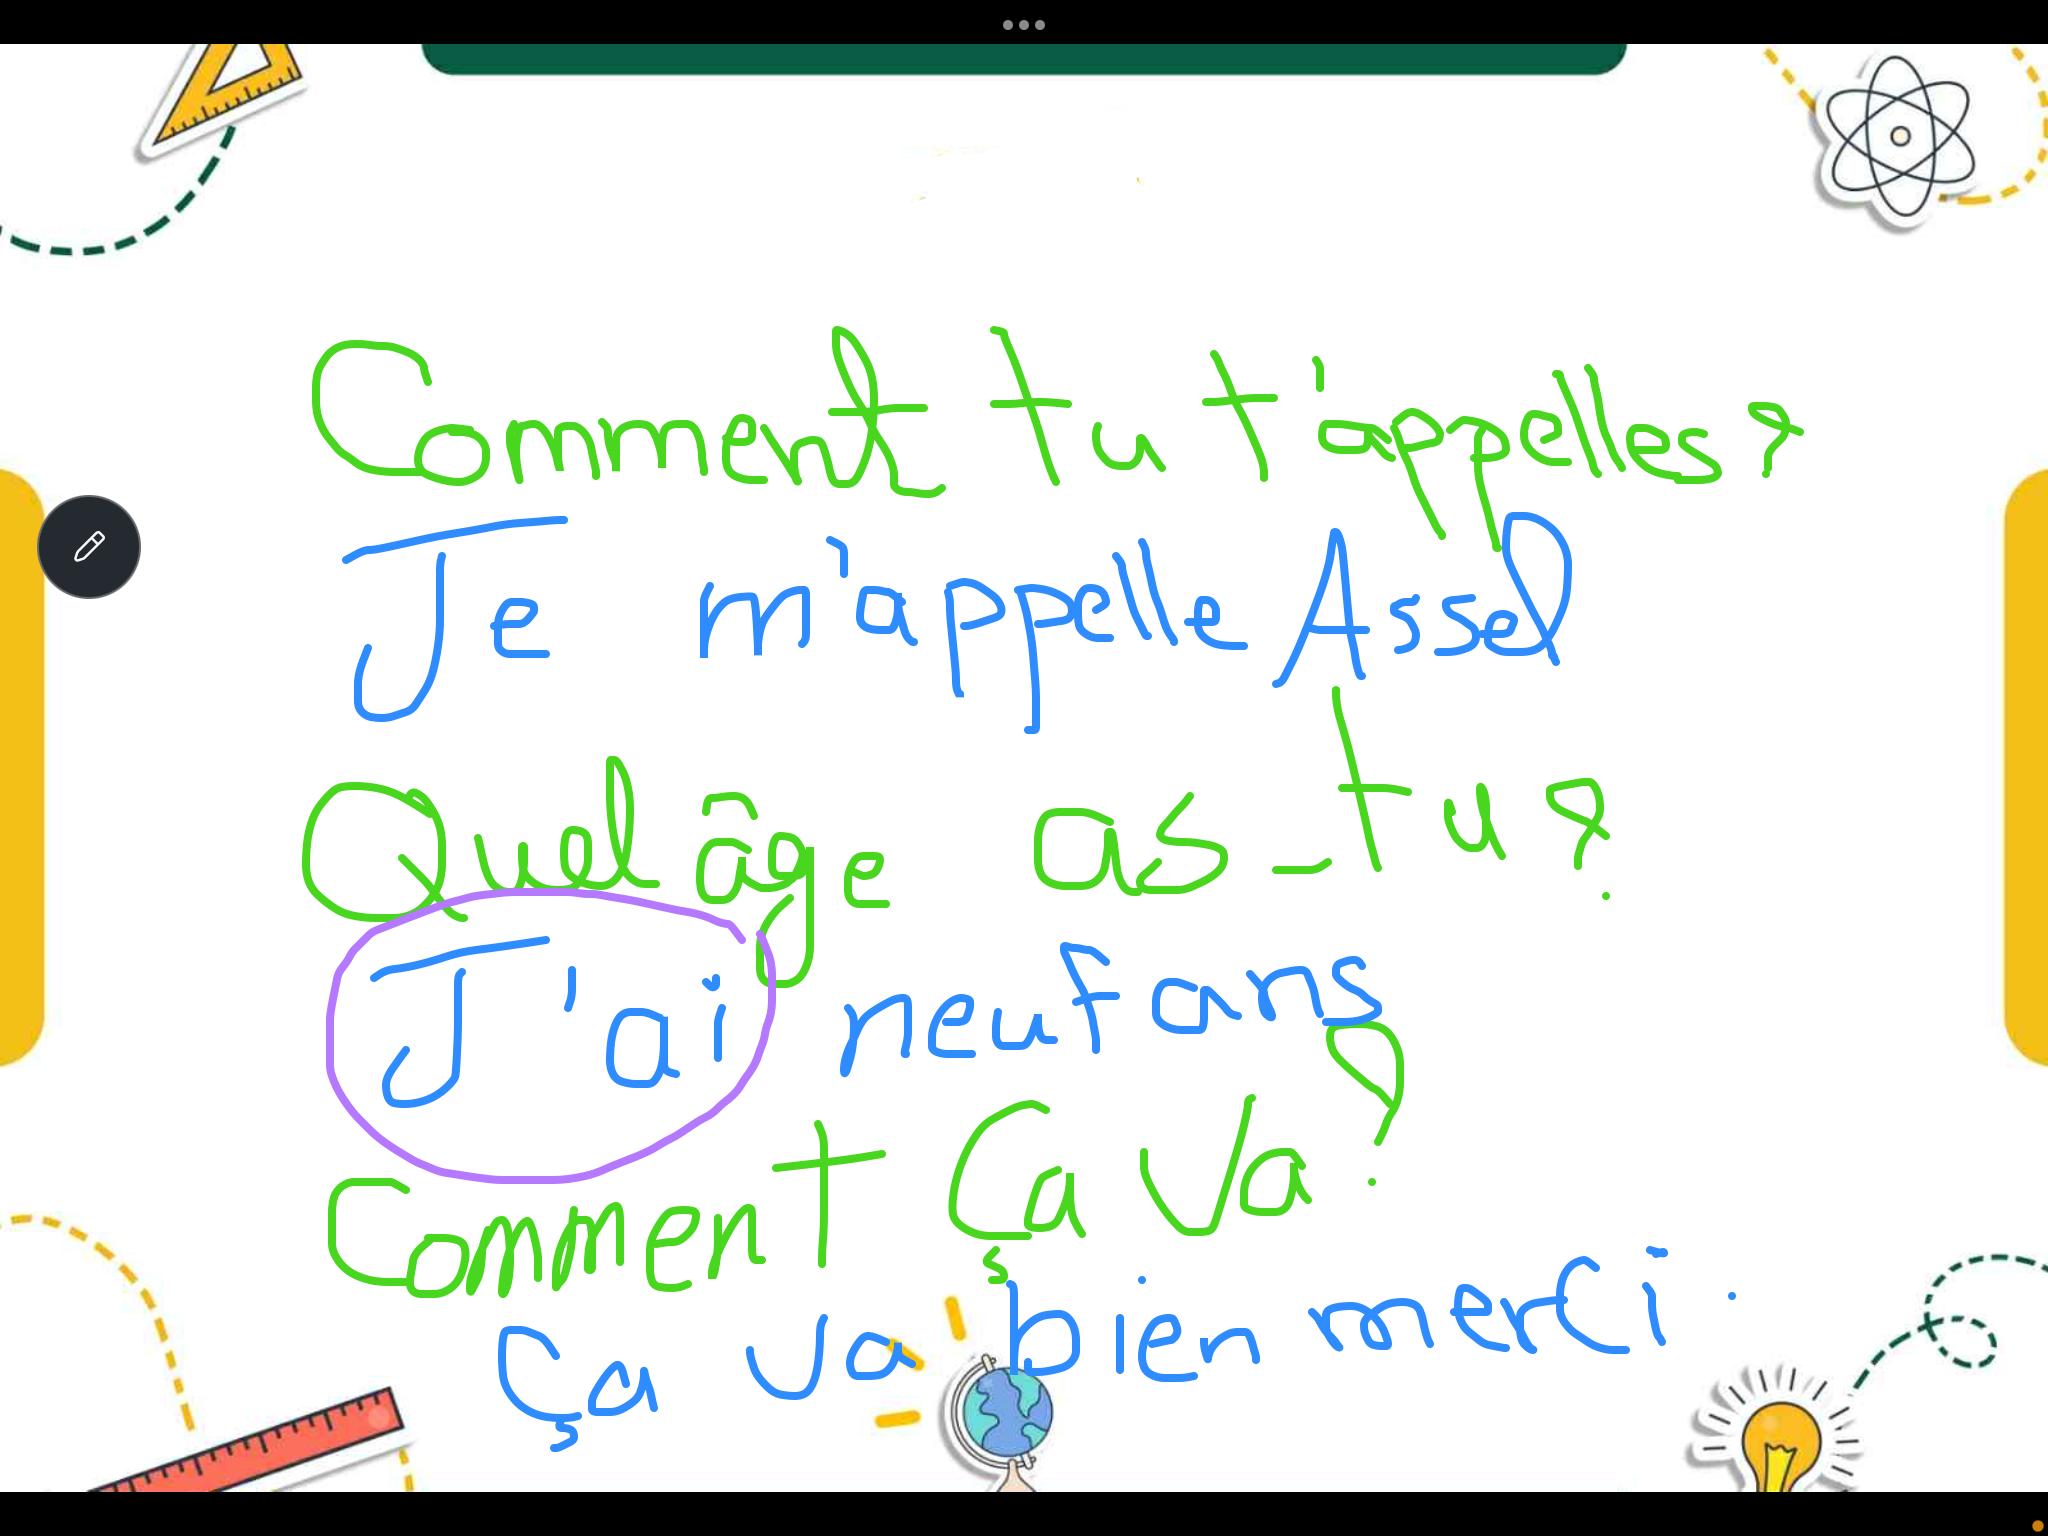 Comment tu t'appelles?
Je m'appelle Assel
Quel âge as-tu?
J'ai neuf ans
Comment Ça va?
Ça va bien merci.